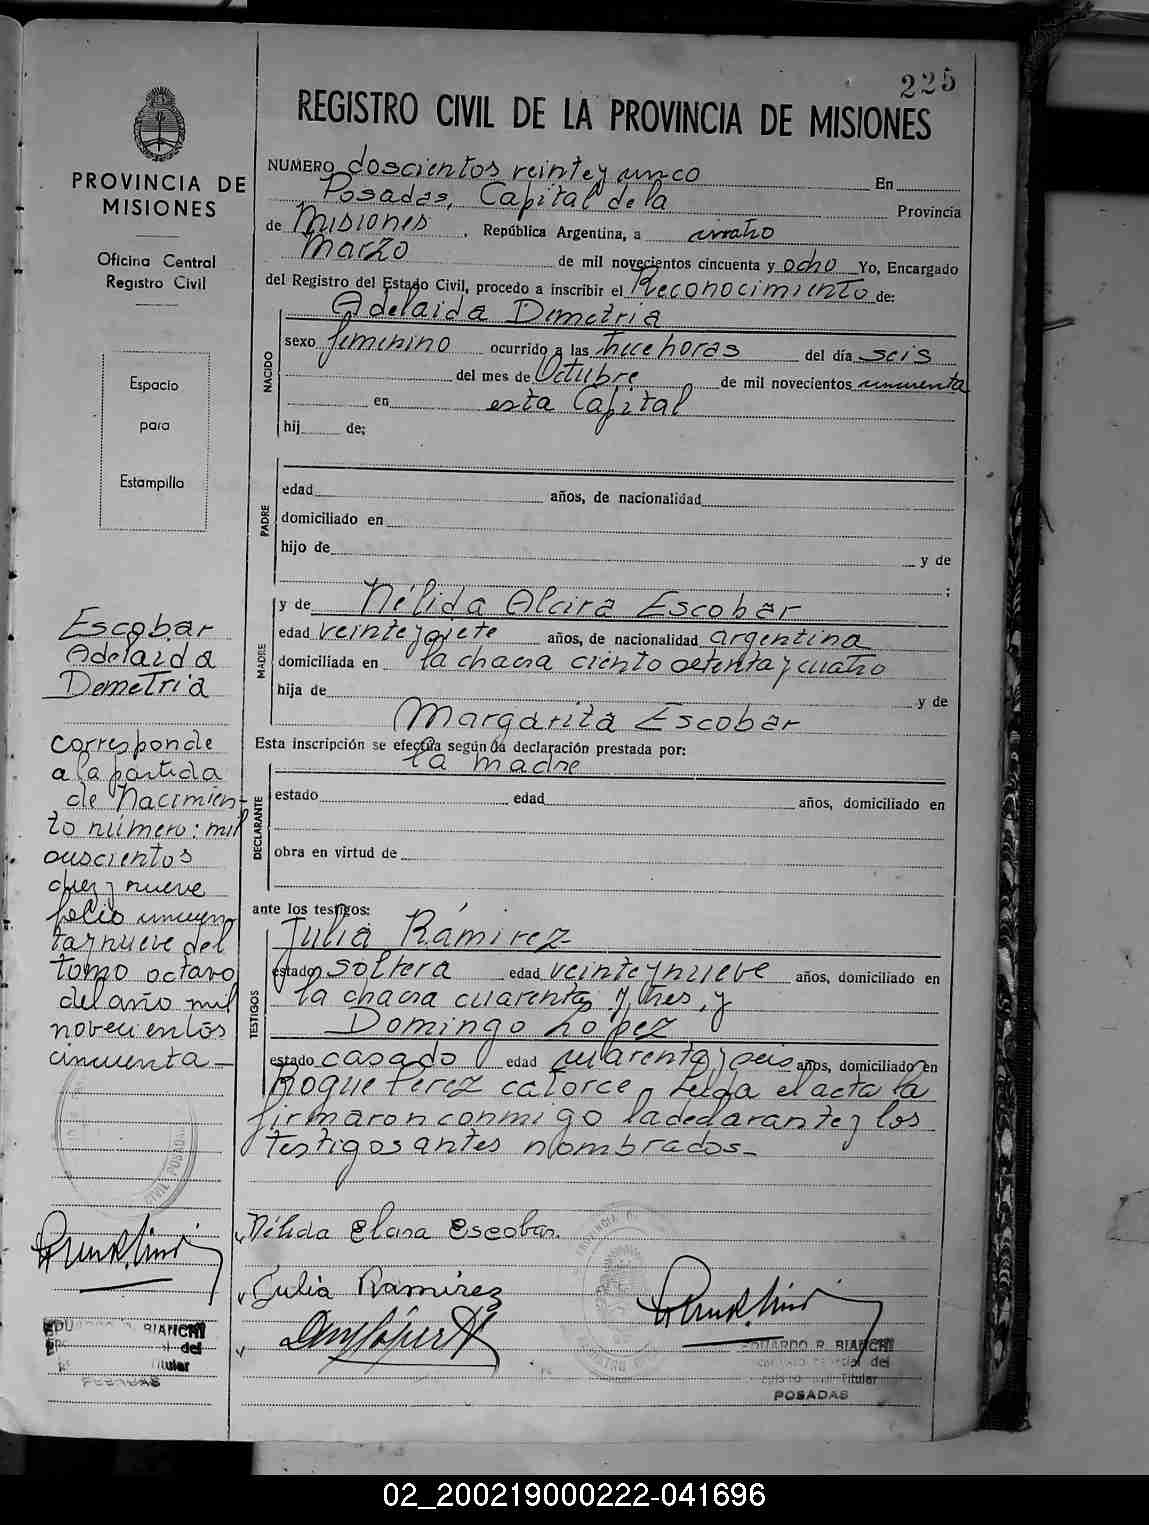 225
REGISTRO CIVIL DE LA PROVINCIA DE MISIONES
NUMERO doscientos veinte y unco En
Posadas, Capital de la Provincia
de Misiones, República Argentina, a cuatro
Marzo de mil novecientos cincuenta y ocho Yo, Encargado
del Registro del Estado Civil, procedo a inscribir el Reconocimiento de:
Adelaida Demetria
NACIDO
sexo femenino ocurrido a las trece horas del día seis
del mes de Octubre de mil novecientos cincuenta
en esta Capital
hij de:
PADRE
edad años, de nacionalidad
domiciliado en
hijo de y de
;
MADRE
y de Nélida Alcira Escobar
edad veinte y siete años, de nacionalidad argentina
domiciliada en la chacra ciento setenta y cuatro
hija de y de
Margarita Escobar
Esta inscripción se efectúa según la declaración prestada por:
la madre
DECLARANTE
estado edad años, domiciliado en
obra en virtud de
ante los testigos:
TESTIGOS
Julia Ramirez
estado soltera edad veinte y nueve años, domiciliado en
la chacra cuarenta y tres, y
Domingo Lopez
estado casado edad cuarenta y seis años, domiciliado en
Roque Perez catorce Leida el acta la
firmaron conmigo la declarante y los
testigos antes nombrados—
Nélida Elara Escobar.
Julia Ramirez
EDUARDO R. BIANCHI
del
Titular
POSADAS
PROVINCIA DE
MISIONES
Oficina Central
Registro Civil
Espacio
para
Estampilla
Escobar
Adelaida
Demetria
corresponde
a la partida
de Nacimien-
to número: mil
doscientos
diez y nueve
folio cincuen
ta y nueve del
tomo octavo
del año mil
novecientos
cincuenta—
CIVIL POSADAS
EDUARDO R. BIANCHI
del
Titular
POSADAS
02_200219000222-041696